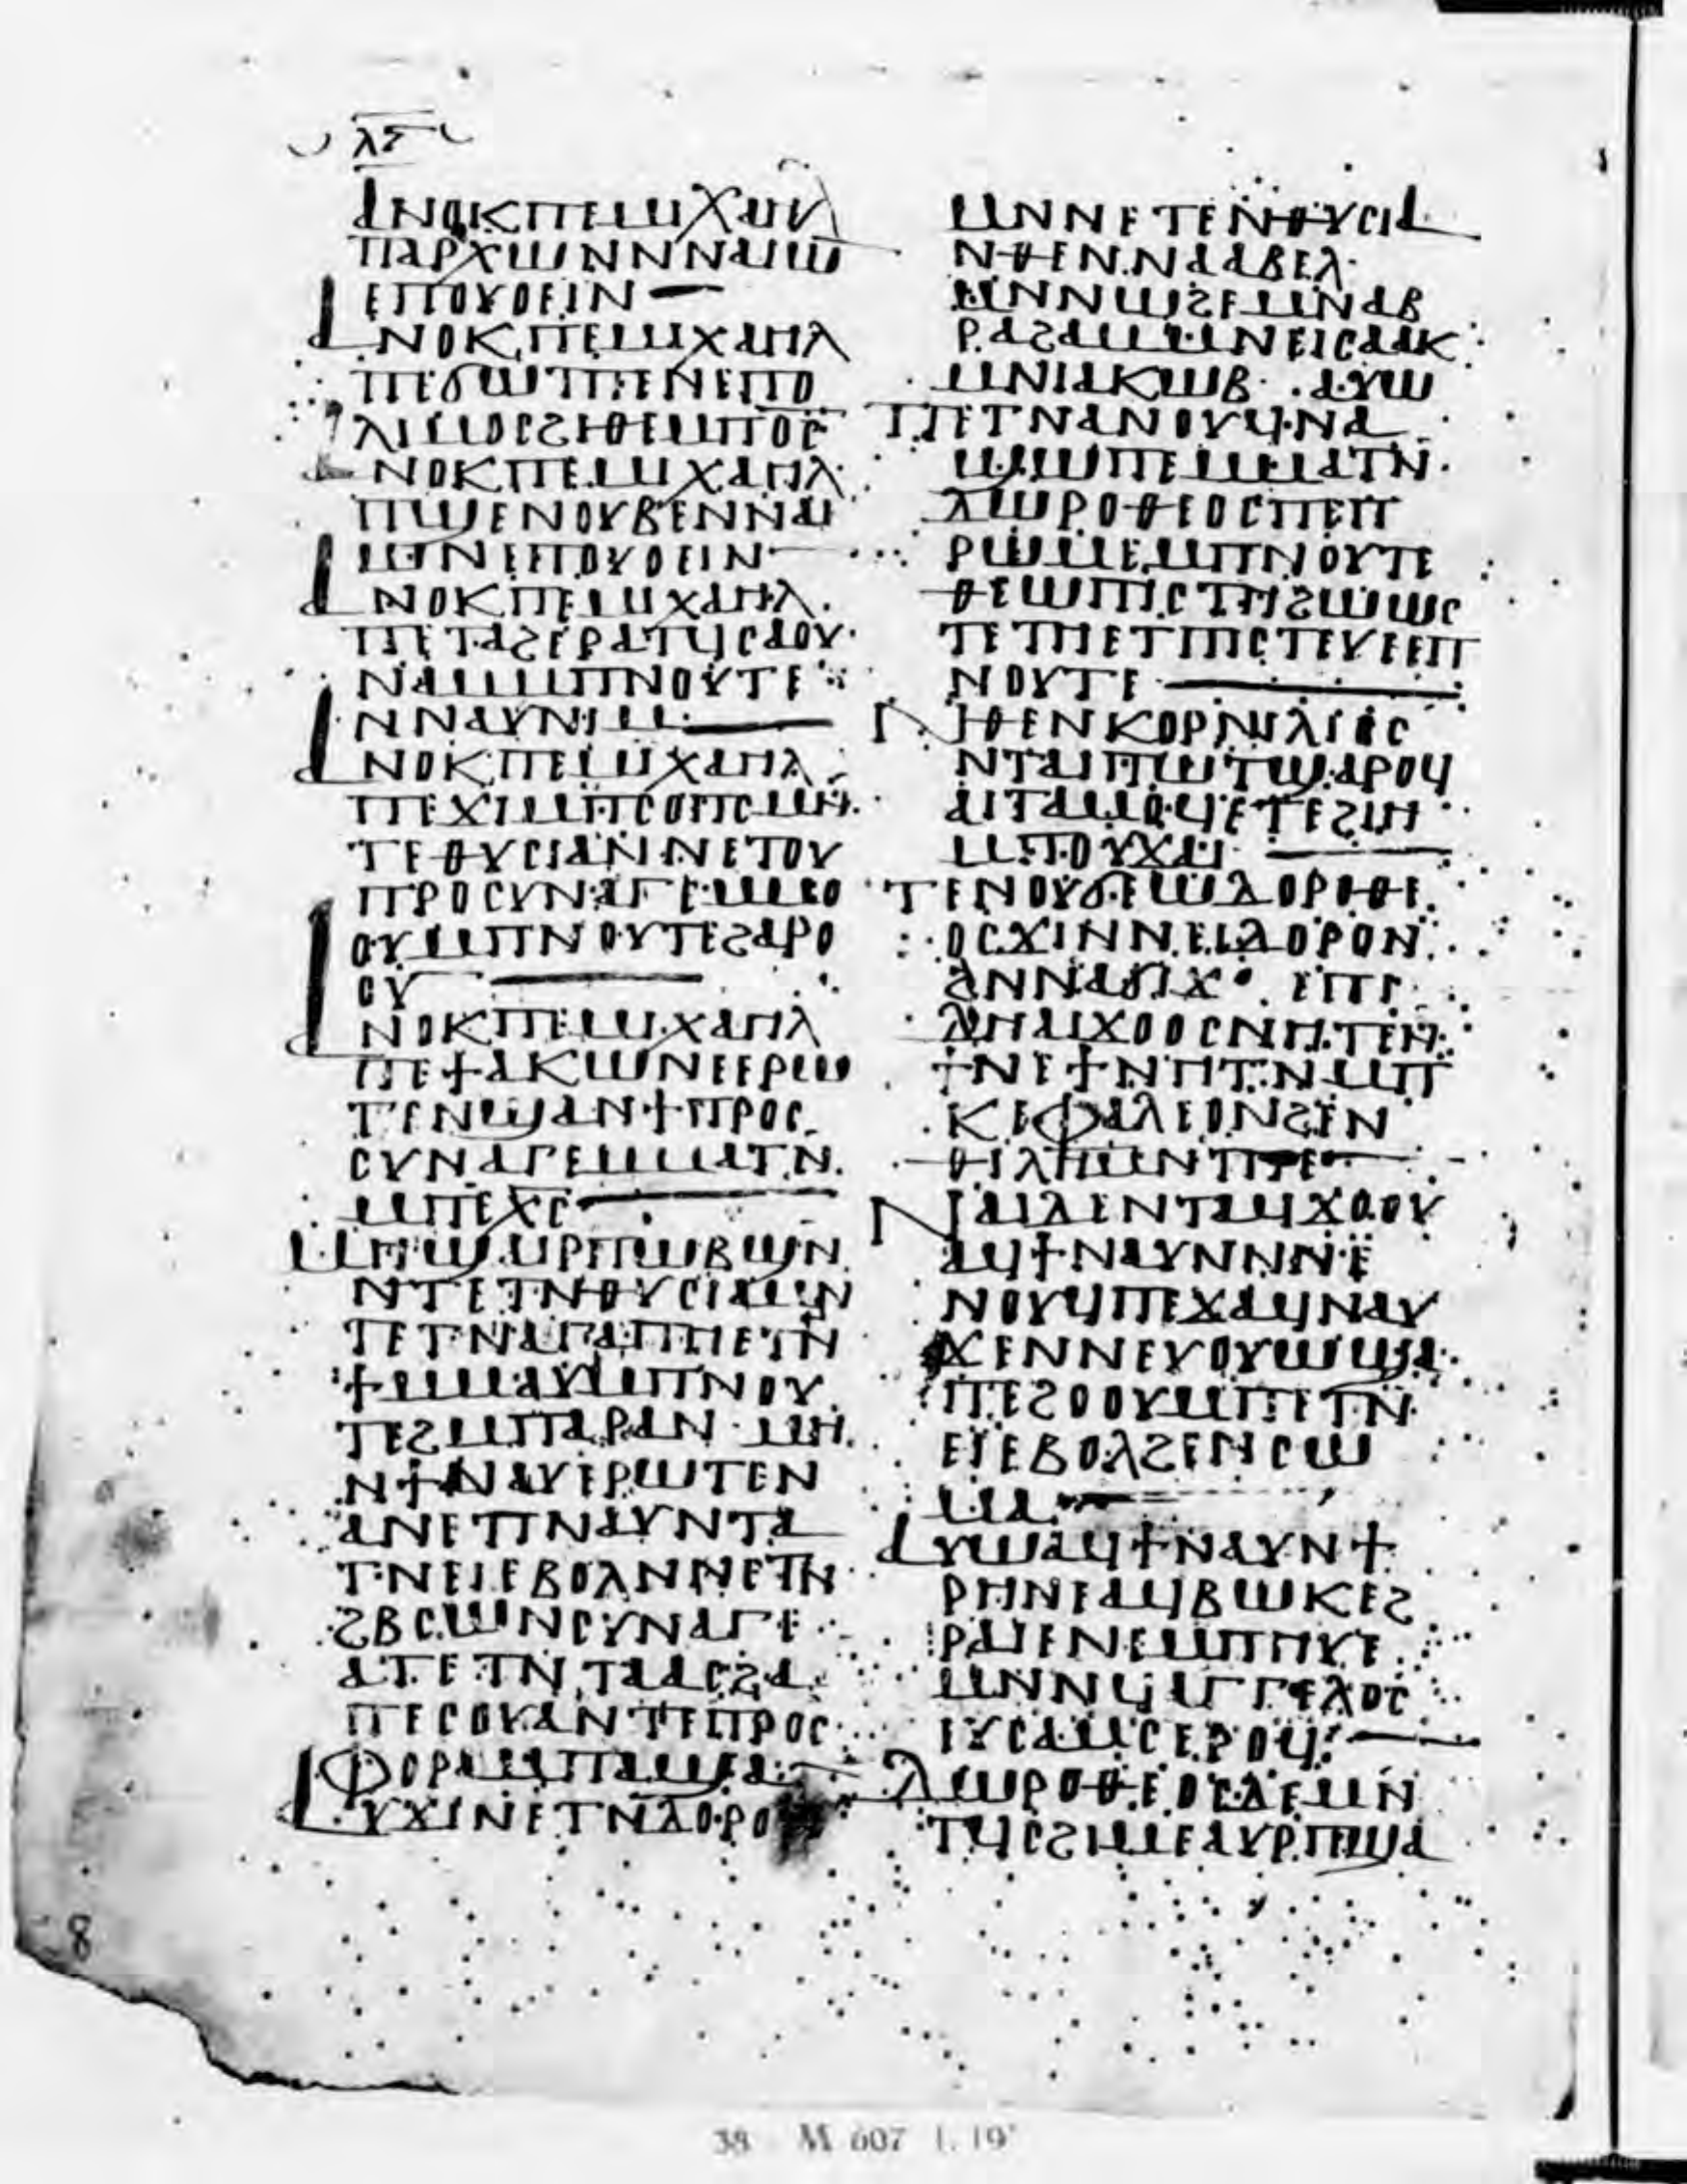 ⲗⲋ
ⲁⲛⲟⲕⲡⲉⲙⲓⲭⲁⲏⲗ
ⲡⲁⲣⲭⲱⲛⲛⲛⲁⲓⲱ
ⲉⲡⲟⲩⲟⲉⲓⲛ
ⲁⲛⲟⲕⲡⲉⲙⲓⲭⲁⲏⲗ
ⲡⲉϭⲱⲡⲡⲉⲛⲉⲡⲟ
ⲗⲓⲙⲟⲥϩⲓⲑⲉⲙⲡⲟⲥ
ⲁⲛⲟⲕⲡⲉⲙⲓⲭⲁⲏⲗ
ⲡϣⲉⲛⲟⲩⲃⲉⲛⲛⲁⲓ
ⲙⲓⲛⲉⲡⲟⲩⲟⲉⲓⲛ
ⲁⲛⲟⲕⲡⲉⲙⲓⲭⲁⲏⲗ
ⲡⲉⲧⲁϩⲉⲣⲁⲧϥⲥⲁⲟⲩ
ⲛⲁⲙⲙⲡⲛⲟⲩⲧⲉ
ⲛⲛⲁⲩⲛⲓⲙ
ⲁⲛⲟⲕⲡⲉⲙⲓⲭⲁⲏⲗ
ⲡⲉⲭⲓⲙⲡⲥⲟⲡⲥⲙⲛ
ⲧⲉⲑⲩⲥⲓⲁⲛⲛⲉⲧⲟⲩ
ⲡⲣⲟⲥⲩⲛⲁⲅⲉⲙⲙⲟ
ⲟⲩⲙⲡⲛⲟⲩⲧⲉϩⲁⲣⲟ
ⲟⲩ
ⲁⲛⲟⲕⲡⲉⲙⲓⲭⲁⲏⲗ
ⲡⲉϯⲁⲕⲱⲛⲉⲉⲣⲱ
ⲧⲉⲛϣⲁⲛϯⲡⲣⲟⲥ
ⲥⲩⲛⲁⲅⲉⲙⲙⲁⲧⲛ
ⲙⲡⲉⲭⲥ
ⲙⲏϣⲙⲣⲡⲱⲃϣⲛ
ⲛⲧⲉⲧⲛⲑⲩⲥⲓⲁⲙⲛ
ⲧⲉⲧⲛⲁⲅⲁⲡⲏⲉⲧⲛ
ϯⲙⲙⲁⲩⲙⲡⲛⲟⲩ
ⲧⲉϩⲙⲡⲁⲣⲁⲛⲙⲏ
ⲛϯⲛⲁⲩⲉⲣⲱⲧⲉⲛ
ⲁⲛⲉⲡⲛⲁⲩⲛⲧⲁ
ⲧⲛⲉⲓⲉⲃⲟⲗⲛⲛⲉⲧⲛ
ϩⲃⲥⲱⲛⲥⲩⲛⲁⲅⲉ
ⲁⲧⲉⲧⲛⲧⲁⲁⲥϩⲁ
ⲡⲉⲥⲟⲩⲁⲛⲧⲉⲡⲣⲟⲥ
ⲫⲟⲣⲁⲙⲡⲁⲙϣⲁ
ⲁⲩⲭⲓⲛⲉⲧⲛⲇⲟⲣⲟ
ⲙⲛⲛⲉⲧⲉⲛⲑⲩⲥⲓⲁ
ⲛⲑⲉⲛⲛⲁⲁⲃⲉⲗ
ⲙⲛⲛⲱϩⲉⲙⲛⲁⲃ
ⲣⲁϩⲁⲙⲙⲛⲉⲓⲥⲁⲁⲕ
ⲙⲛⲓⲁⲕⲱⲃ ⲁⲩⲱ
ⲡⲉⲧⲛⲁⲛⲟⲩϥⲛⲁ
ϣⲱⲡⲉⲙⲙⲁⲧⲛ
ⲇⲱⲣⲟⲑⲉⲟⲥⲡⲉⲡ
ⲣⲱⲙⲉⲙⲡⲛⲟⲩⲧⲉ
ⲑⲉⲱⲡⲓⲥⲧⲏϩⲱⲱⲥ
ⲧⲉⲧⲏⲉⲧⲡⲓⲥⲧⲉⲩⲉⲉⲡ
ⲛⲟⲩⲧⲉ
ⲛⲑⲉⲛⲕⲟⲣⲛⲏⲗⲓⲟⲥ
ⲛⲧⲁⲓⲡⲱⲧϣⲁⲣⲟϥ
ⲁⲓⲧⲁⲙⲟϥⲉⲧⲉϩⲓⲏ
ⲙⲡⲟⲩⲭⲁⲓ
ⲧⲉⲛⲟⲩϭⲉⲱⲇⲟⲣⲟⲑⲉ
ⲟⲥⲭⲓⲛⲛⲉⲓⲇⲟⲣⲟⲛ
ϩⲛⲛⲁϭⲓⲭ ⲉⲡⲓ
ⲇⲏⲁⲓⲭⲟⲟⲥⲛⲏⲧⲉⲛ
ϯⲛⲉϯⲛⲏⲧⲛⲙⲡ
ⲕⲉⲫⲁⲗⲉⲟⲛϩⲉⲛ
ⲑⲓⲗⲏⲙⲛⲧⲡⲉ
ⲛⲁⲓⲇⲉⲛⲧⲁϥⲭⲟⲟⲩ
ⲁϥϯⲛⲁⲩⲛⲛⲛⲉ
ⲛⲟⲩϥⲡⲉⲭⲁϥⲛⲁⲩ
ⲭⲉⲛⲛⲉⲩⲟⲩⲱϣϣⲁ
ⲡⲉϩⲟⲟⲩⲙⲡⲉⲧⲛ
ⲉⲓⲉⲃⲟⲗϩⲉⲛⲥⲱ
ⲙⲁ
ⲁⲩⲱⲁϥϯⲛⲁⲩⲛϯ
ⲣⲏⲛⲉⲁϥⲃⲱⲕⲉϩ
ⲣⲁⲓⲉⲛⲉⲙⲡⲏⲩⲉ
ⲙⲛⲛϥⲁⲅⲅⲉⲗⲟⲥ
ⲉⲩⲥⲁⲙⲥⲉⲣⲟϥ
ⲇⲱⲣⲟⲑⲉⲟⲥⲇⲉⲙⲛ
ⲧϥⲥϩⲓⲙⲉⲁⲩⲣⲡϣⲁ
8
38 M 607 f. 19ᵛ